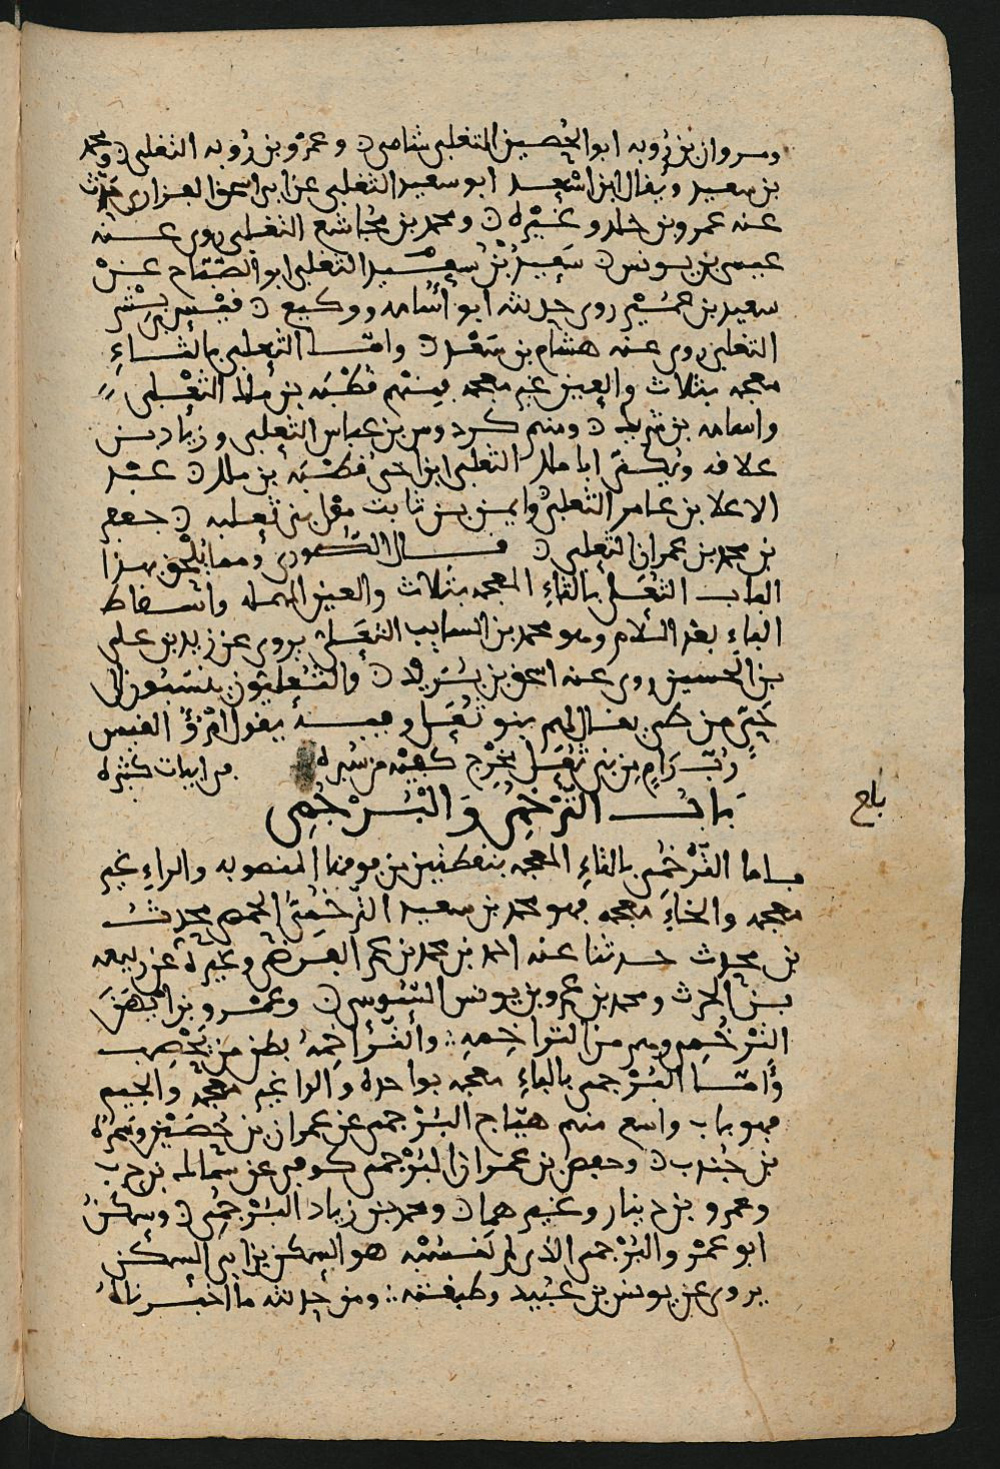 ومروان بن رؤبه ابو الحصين التغلبي شامي ٥ وعمرو بن رؤبه التغلبي ٥ ومحمد
بن سعيد ويقال ابن اسعد ابو سعيد التغلبي عن ابي اسحق الفزاري حدث
عنه عمرو بن خلد وغيره ٥ ومحمد بن مجاشع التغلبي روى عنه
عيسى بن يونس ٥ سعيد بن سعيد التغلبي ابو الصباح عن
سعيد بن عمير روى حديثه ابو اسامه ووكيع ٥ قيس بن بشر
التغلبي روى عنه هشام بن سعد ٥ واما الثعلبي بالثاء
معجمه بثلاث والعين غير معجمه فمنهم قطبه بن ملك الثعلبي
واسامه بن شريك ٥ ومنهم كردوس بن عباس الثعلبي وزياد بن
علاقه ويكنى ابا ملك الثعلبي ابن اخي قطبه بن ملك ٥ عبد
الاعلا بن عامر الثعلبي وايمن بن ثابت مولى بني ثعلبه ٥ جعفر
بن محمد بن عمران الثعلبي ٥ قال الصوري ومما يلحق بهذا
الباب الثعلي بالثاء المعجمه بثلاث والعين المهمله واسقاط
الباء بعد اللام وهو محمد بن السايب الثعلي يروى عن زيد بن علي
بن الحسين روى عنه اسحق بن يزيد ٥ والثعليون ينسبون الى
حي من طي يقال لهم بنو ثعل وفيهم يقول امرؤ القيس
رب رام من بني ثعل مخرج كفيه من ستره في ابيات كثيره
باب الترخمي والبرجمي
بلغ
فاما الترخمي بالتاء المعجمه بنقطتين من فوقها المنصوبه والراء غير
معجمه والخاء معجمه فهو محمد بن سعيد الترخمي الحمصي محدث
بن محدث حدثنا عنه احمد بن محمد بن عمر الفرضي وغيره عن ربيعه
بن الحرث ومحمد بن عمرو بن يونس السوسي ٥ وعمرو بن
الترخمي وهم من التراخمه والتراخمه بطن من يحصب
واما البرجمي بالباء معجمه بواحده والرا غير معجمه والجيم
فهو باب واسع منهم هياج البرجمي عن عمران بن حصين وسمره
بن جندب ٥ وحفص بن عمران البرجمي كوفي عن سماك بن حرب
وعمرو بن دينار وغيرهما ٥ ومحمد بن زياد البرجمي ٥ وسكن
ابو عمرو البرجمي الذي لم نفسبه هو السكن بن ابي السكن
يروى عن يونس بن عبيد وطبقته ومن حديثه ما اخبرناه